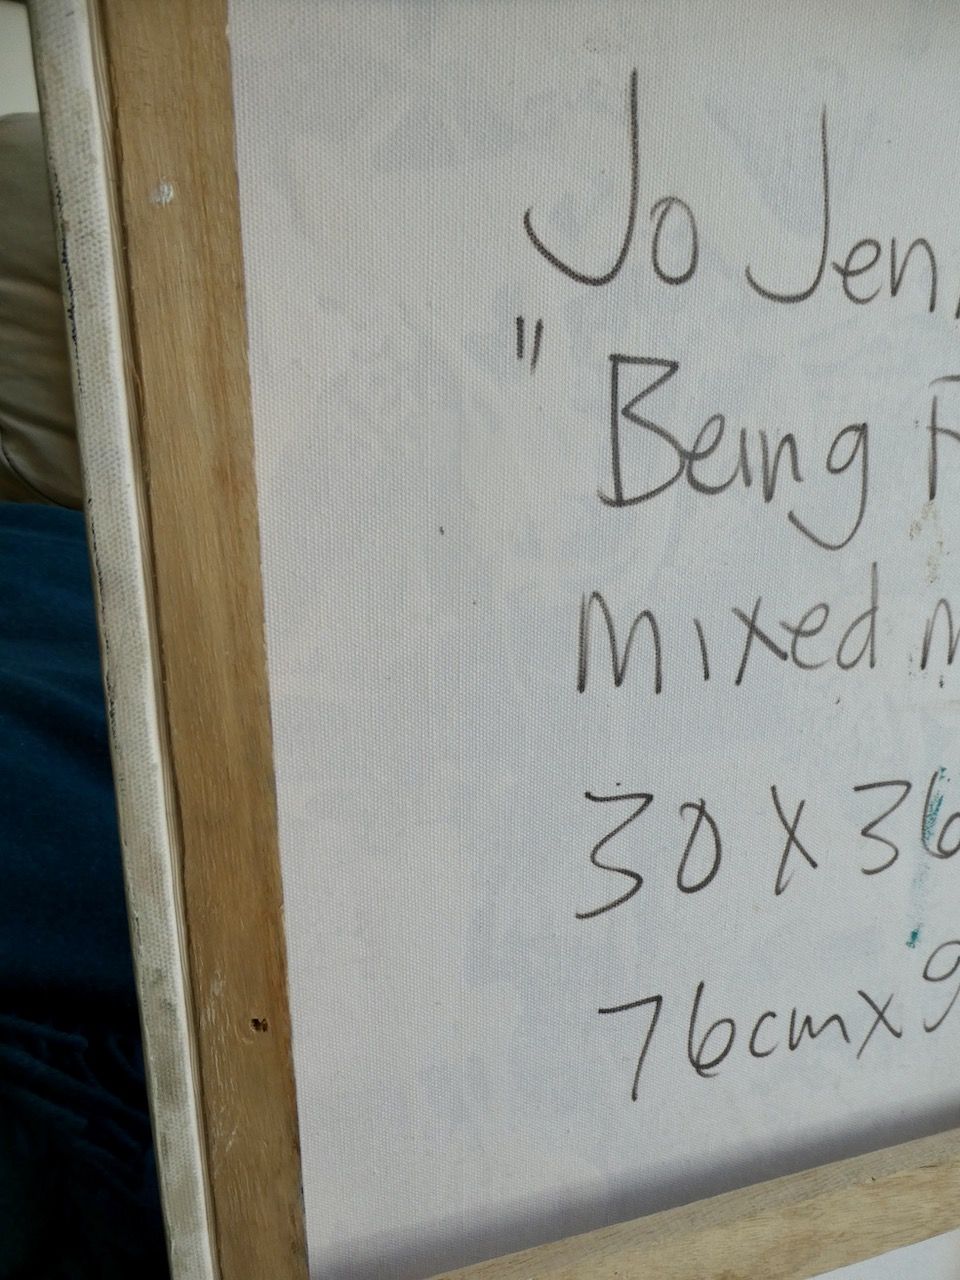 Jo Jen
" Being
mixed m
30 X 36
76cm x 9